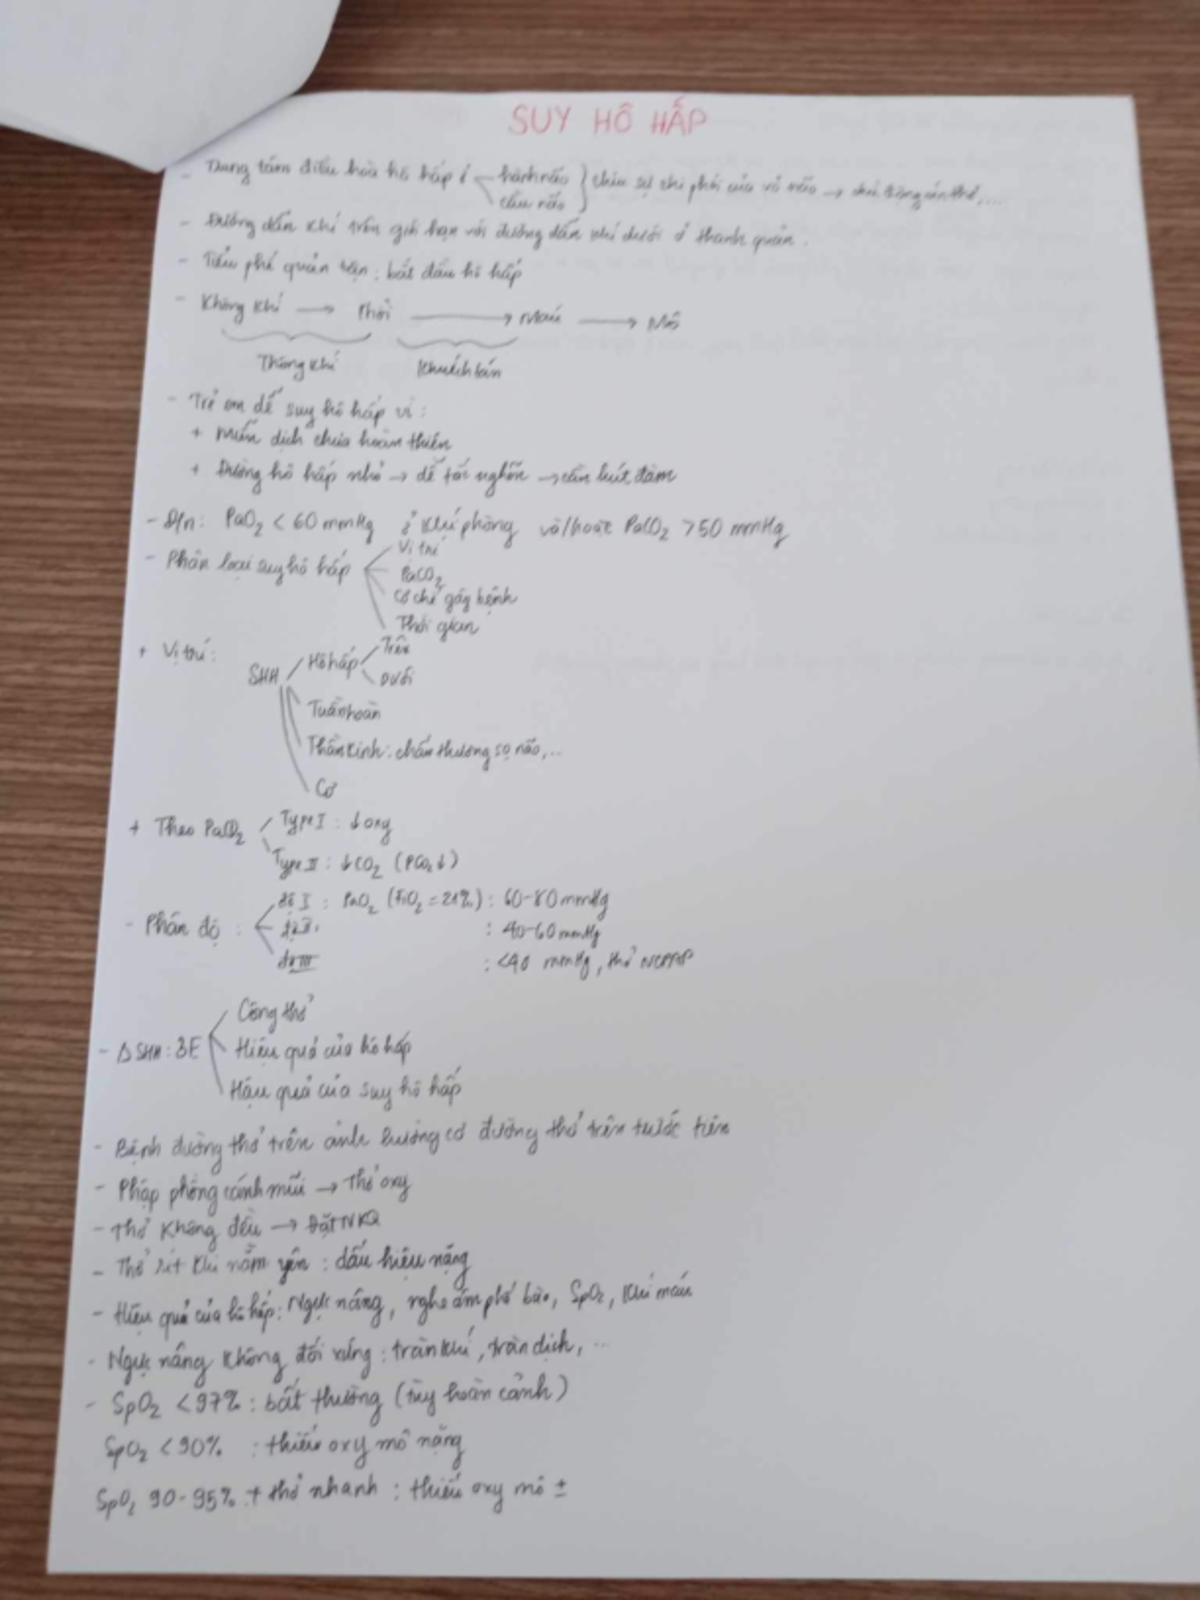 SUY HÔ HẤP
- Trung tâm điều hoà hô hấp ở hành não chịu sự chi phối của vỏ não →
cầu não
- Đường dẫn khí trên giới hạn với đường dẫn khí dưới ở thanh quản.
- Tiểu phế quản tận: bắt đầu hô hấp
- Không khí → Phổi → Máu → Mô
Thông khí Khuếch tán
- Trẻ em dễ suy hô hấp vì:
+ Miễn dịch chưa hoàn thiện
+ Đường hô hấp nhỏ → dễ tắc nghẽn → cần hút đàm
- Đ/n: PaO2 < 60 mmHg ở khí phòng và/hoặc PaCO2 > 50 mmHg
- Phân loại suy hô hấp
Vị trí
PaCO2
Cơ chế gây bệnh
Thời gian
+ Vị trí:
SHH Hô hấp Trên
Dưới
Tuần hoàn
Thần kinh: chấn thương sọ não,...
Cơ
+ Theo PaCO2 Type I: ↓ oxy
Type II: ↓CO2 (PCO2↓)
- Phân độ: độ I: PaO2 (FiO2 = 21%): 60-80 mmHg
độ II: : 40-60 mmHg
độ III : <40 mmHg, thở NCPAP
- Δ SHH: 3E
Công thở
Hiệu quả của hô hấp
Hậu quả của suy hô hấp
- Bệnh đường thở trên ảnh hưởng cơ đường thở trên trước tiên
- Phập phồng cánh mũi → Thở oxy
- Thở không đều → Đặt NKQ
- Thở rít khi nằm yên: dấu hiệu nặng
- Hiệu quả của hô hấp: Ngực nâng, nghe âm phế bào, SpO2, khí máu
- Ngực nâng không đối xứng: tràn khí, tràn dịch,...
- SpO2 <97%: bất thường (tùy hoàn cảnh)
SpO2 <90% : thiếu oxy mô nặng
SpO2 90-95% + thở nhanh: thiếu oxy mô ±